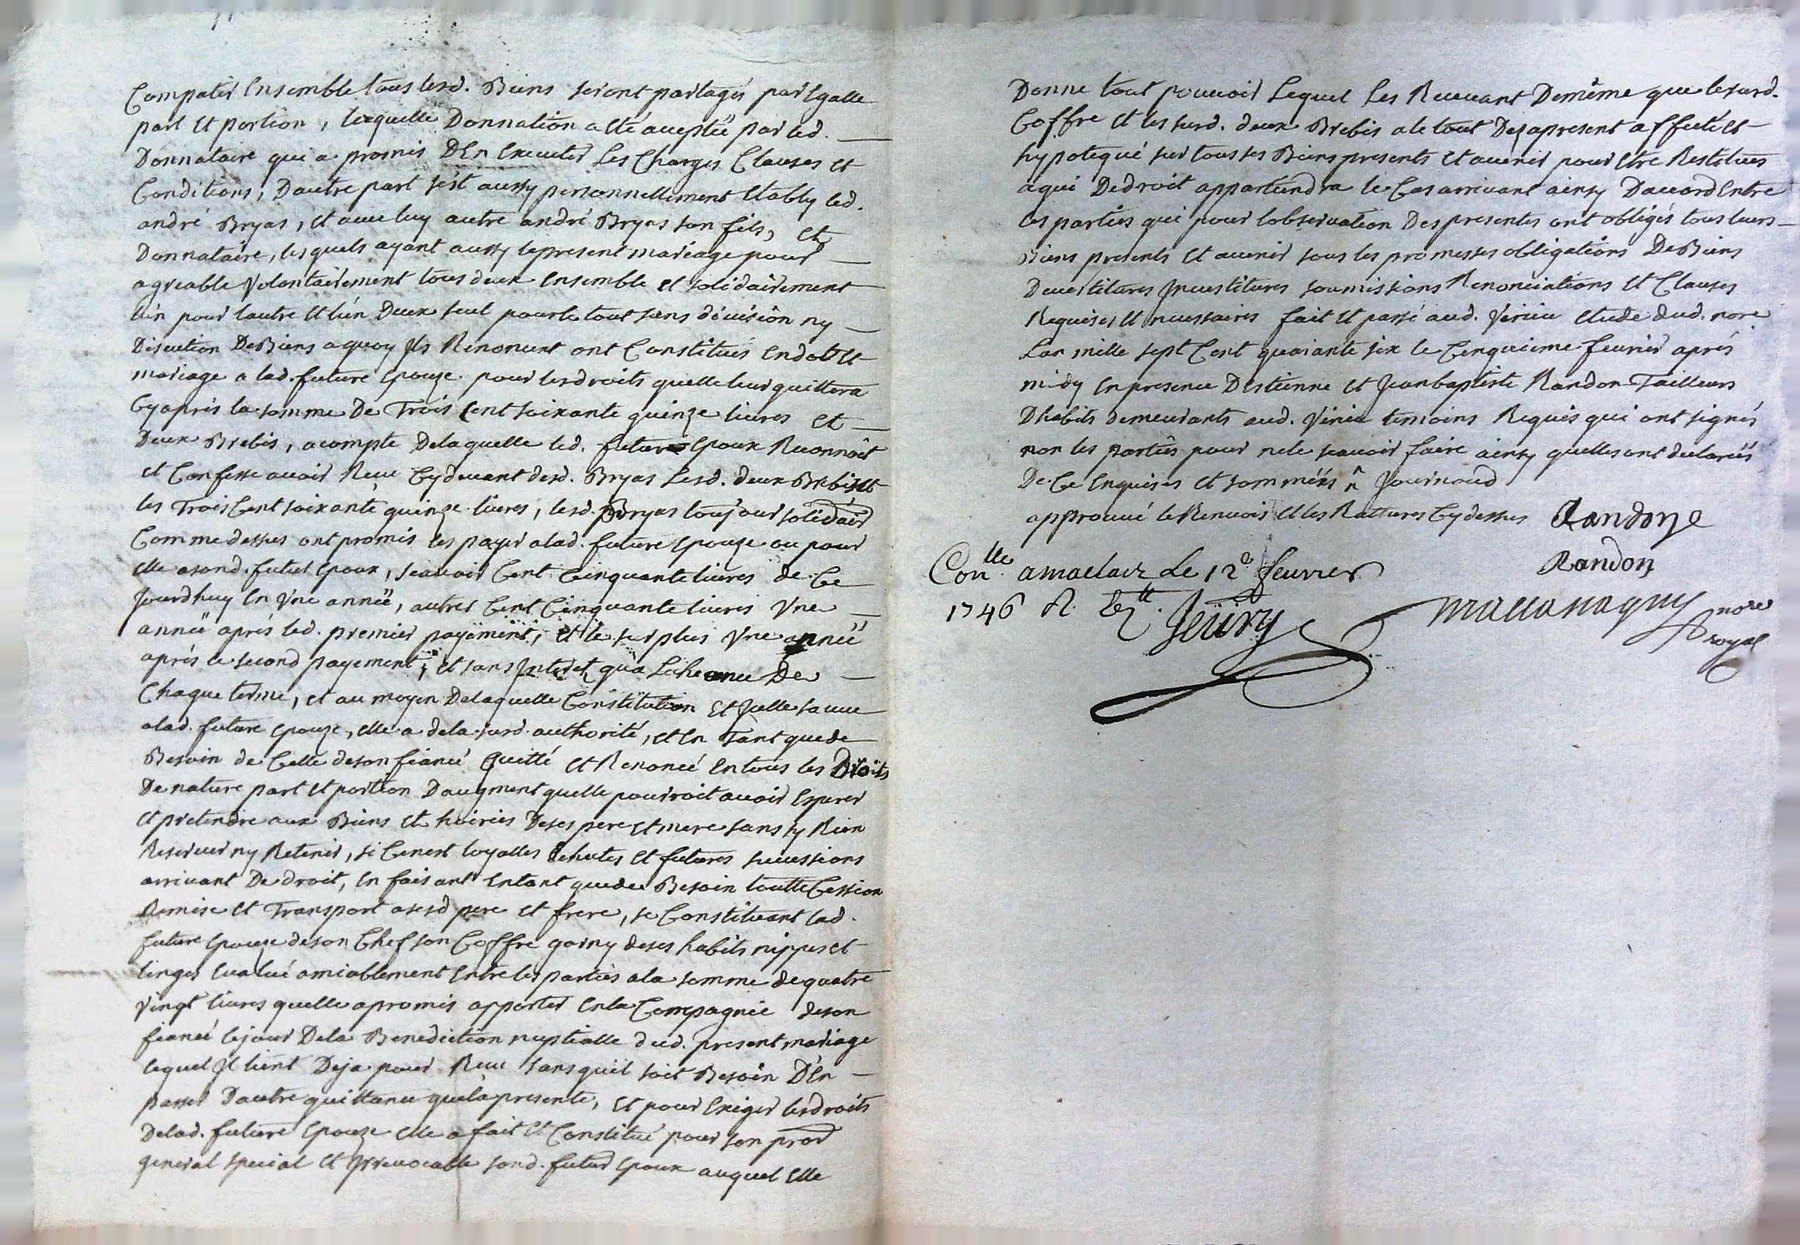 Compatir Ensemble tous lesd. Biens seront partagés par Egalle
part Et portion, lexquelle Donnation a Eté acceptée par led.
Donnataire qui a promis D'En Executer Les Charges Clauses et
Conditions; Dautre part s'est aussy personnellement Etably led.
andré Bryas, Et avec luy autre andré Bryas son fils, et
Donnataire, lesquels ayant aussy le present mariage pour
agreable Volontairement tous deux Ensemble et solidairement
lún pour lautre Et lún Deux seul pour le tout sans division ny
Discution De Biens a quoy Ils Renoncent ont Constitués En dot Et
mariage a lad. future Epouze pour les droits quelle leur quittera
Cyaprés la somme De Trois Cent soixante quinze livres et
Deux Brebis, acompte Delaquelle led. futur Epoux Reconnoit
et Confesse avoir Reçu Cydevant desd. Bryas Lesd. deux Brebis Et
les Trois Cent soixante quinze livres, lesd. Bryas toujour solidair
Comme dessus ont promis les payer alad. future Epouze ou pour
elle a sond. futur Epoux, scavoir Cent Cinquante livres de Ce
Jourdhuy En Vne année, autres Cent Cinquante livres Vne
année aprés led. premier payement, et le surplus Vne année
aprés ce second payement; et sans Interet qu'a Lecheance De
Chaque terme, et au moyen Delaquelle Constitution Et Jcelle sauve
alad. future Epouze, elle a dela surd. authorité, et En Tant que de
Besoin de Celle deson fiancé Quitté et Renoncé En tous les Droits
De nature part Et portion Daugment quelle pourroit avoir Esperer
et pretendre aux Biens Et hoiries Deses pere et mere sans sy Rien
Reserver ny Retenir, si Cenest loyalles Echutes Et futures successions
arrivant De droit, En faisant Entant quede Besoin toutte Cession
Remise Et Transport a sesd pere et frere, se Constituant lad.
future Epouze deson Chef son Coffre garny deses habits nippes et
linges Evalué amiablement Entre les parties ala somme de quatre
Vingt livres quelle apromis apporter En la Compagnie deson
fiancé le jour Dela Benediction nuptialle dud. present mariage
lequel Jl tient Deja pour Reçu sans quil soit Besoin D'En
passer Dautre quittance que la presente, Et pour Exiger les droits
Delad. future Epouze elle a fait Et Constitué pour son procr
general special et Jrrevocable sond. futur Epoux auquel Elle
Donne tout pouvoir Lequel Les Recevant Demême que le surd.
Coffre Et les surd. deux Brebis a le tout Dezapresent affecté Et
hypotequé sur tous ses Biens presents Et avenir pour Etre Restitués
a qui De droit appartiendra le Cas arrivant ainsy Daccord Entre
les parties qui pour lobservation Des presentes ont obligés tous leurs
Biens presents Et avenir sous les promesses obligations De Biens
Devestitures Jnvestitures soumissions Renonciations Et Clauses
Requises Et necessaires fait Et passé aud. Verine Etude dud. nore.
Lan mille sept Cent quarante six le Cinquieme fevrier aprés
midy En presence Destienne Et Jeanbaptiste Randon Tailleurs
Dhabits demeurants aud. Verine temoins Requis qui ont signés
non les parties pour ne le scavoir faire ainsy quelles ont declarées
De Ce Enquises Et sommées
approuvé le Renvois Et les Rattures Cydessus Randon
Randon
Conlle. a le 12e fevrier
1746 R.
nore royal